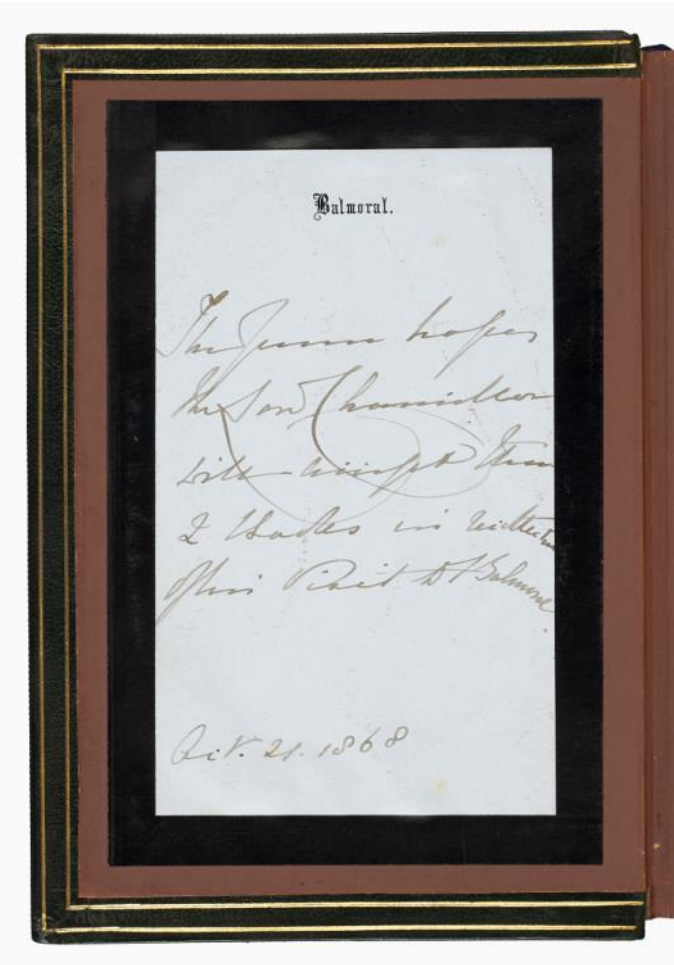 Balmoral.
The Queen hopes
the Lord Chancellor
will accept these
2 Books in recollection
of his Visit to Balmoral.
Oct. 21. 1868